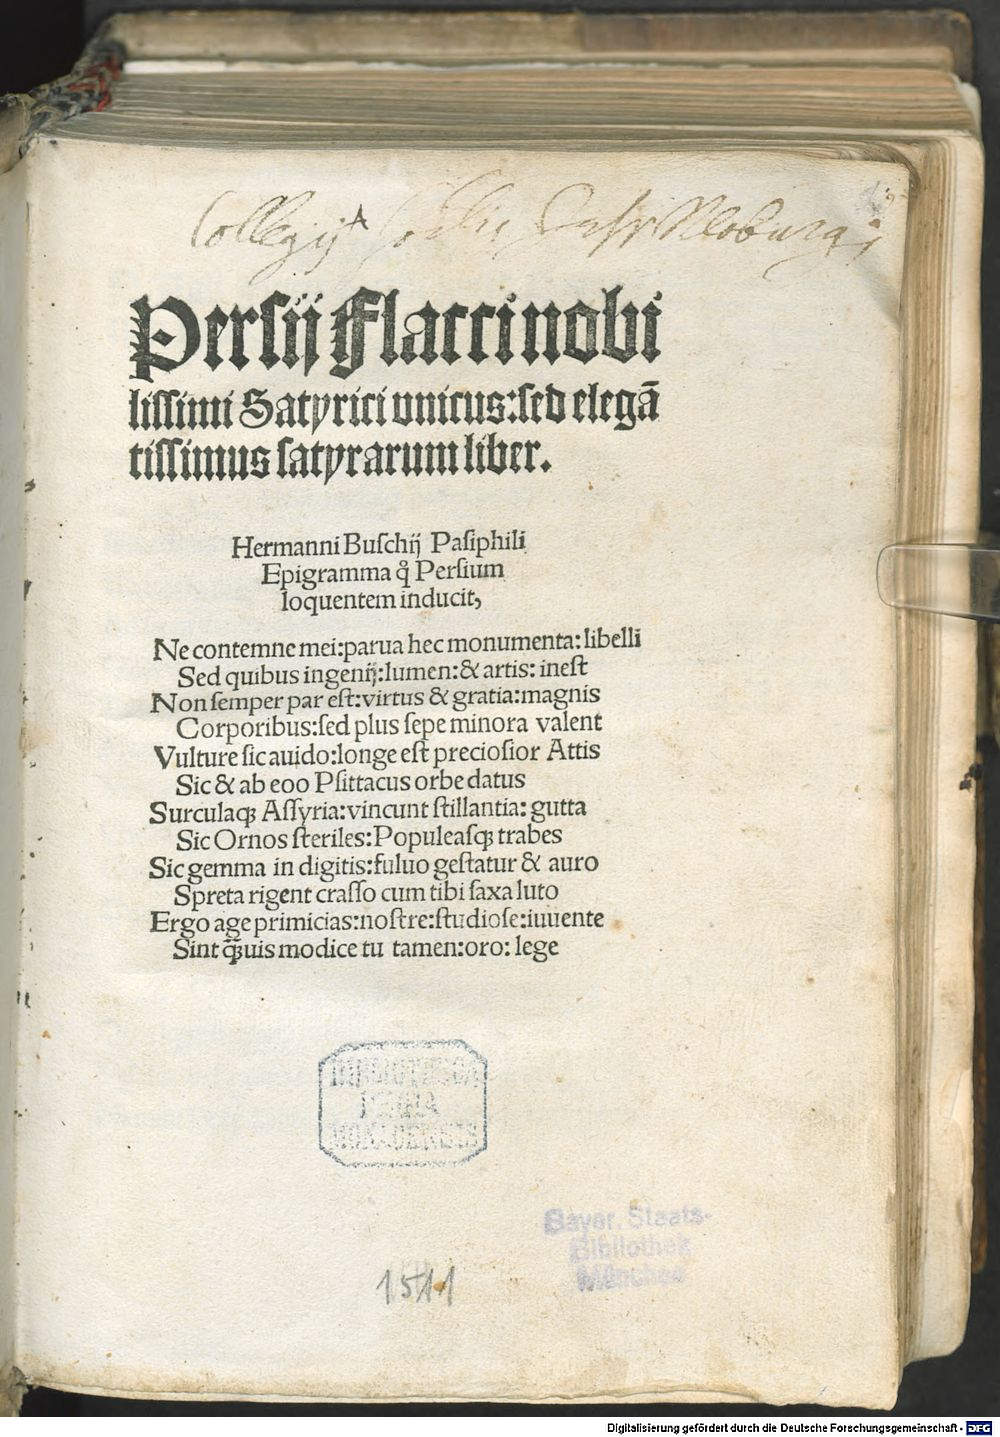 Persij Flacci nobi
lissimi Satyrici vnicus: sed elegā
tissimus satyrarum liber.
Hermanni Buſchij Paſiphili
Epigramma q̊ Perſium
loquentem inducit,
Ne contemne mei:parua hec monumenta: libelli
Sed quibus ingenij:lumen:& artis: ineſt
Non ſemper par eſt:virtus & gratia:magnis
Corporibus:ſed plus ſepe minora valent
Vulture ſic auido:longe eſt precioſior Attis
Sic & ab eoo Pſittacus orbe datus
Surculaqꝫ Aſſyria:vincunt ſtillantia: gutta
Sic Ornos ſteriles:Populeaſqꝫ trabes
Sic gemma in digitis:fuluo geſtatur & auro
Spreta rigent craſſo cum tibi ſaxa luto
Ergo age primicias:noſtre:ſtudioſe:iuuente
Sint q̄ꝫuis modice tu tamen:oro: lege
BIBLIOTHECA
REGIA
MONACENSIS
Bayer. Staats-
Bibliothek
München
1511
Digitalisierung gefördert durch die Deutsche Forschungsgemeinschaft - DFG